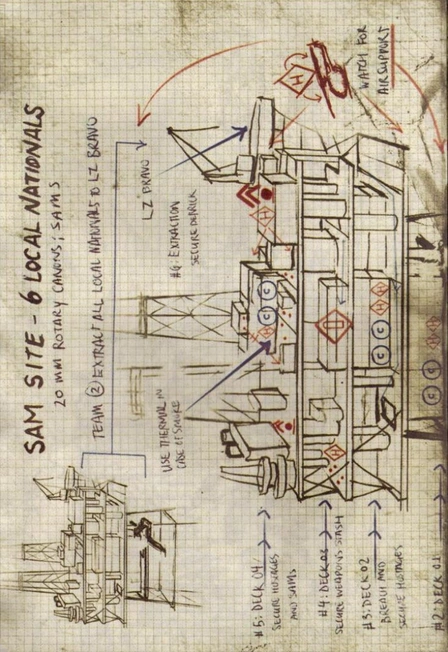 SAM SITE - 6 LOCAL NATIONALS
20 MM ROTARY CANONS; SAMS
TEAM 2 EXTRACT ALL LOCAL NATIONALS TO LZ BRAVO
USE THERMAL IN
CASE OF SMOKE
LZ BRAVO
#6: EXTRACTION
SECURE DERRICK
WATCH FOR
AIRSUPPORT
H
H
C C
C C
H
C C
C C
H H
C C
H
#5: DECK 04
SECURE HOSTAGES
AND SAMS
#4: DECK 03
SECURE WEAPONS STASH
#3: DECK 02
BREACH AND
SECURE HOSTAGES
#2: DECK 01